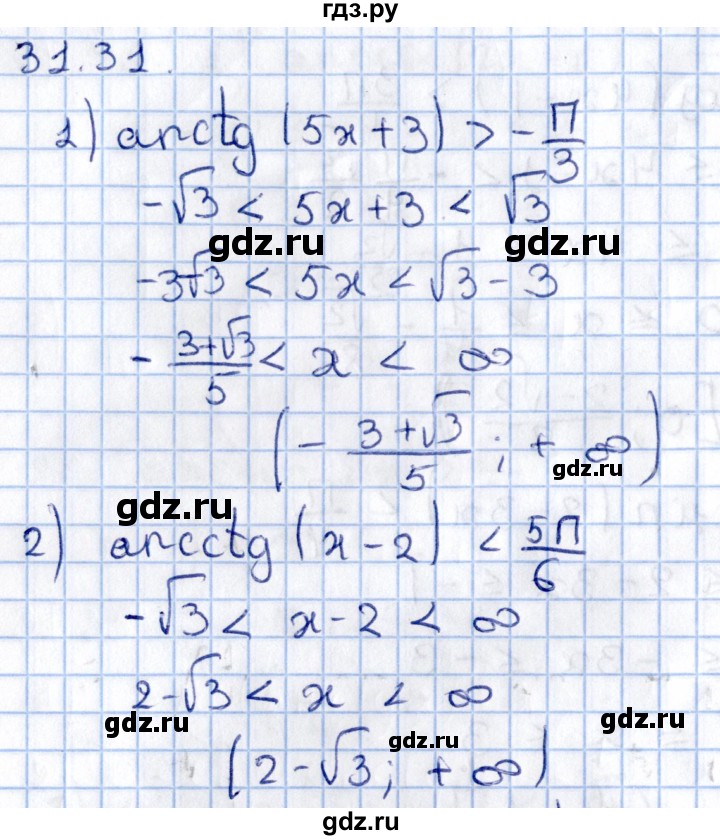 гдз.ру
31.31.
1) arctg (5x+3) > -П/3
-√3 < 5x+3 < √3
gdz.ru gdz.ru
-3-√3 < 5x < √3 - 3
- (3+√3)/5 < x < ∞
(- (3+√3)/5 ; + ∞)
gdz.ru
gdz.ru
2) arcctg (x-2) < 5П/6
-√3 < x-2 < ∞
2-√3 < x < ∞
gdz.ru gdz.ru
gdz.ru
(2-√3; +∞)